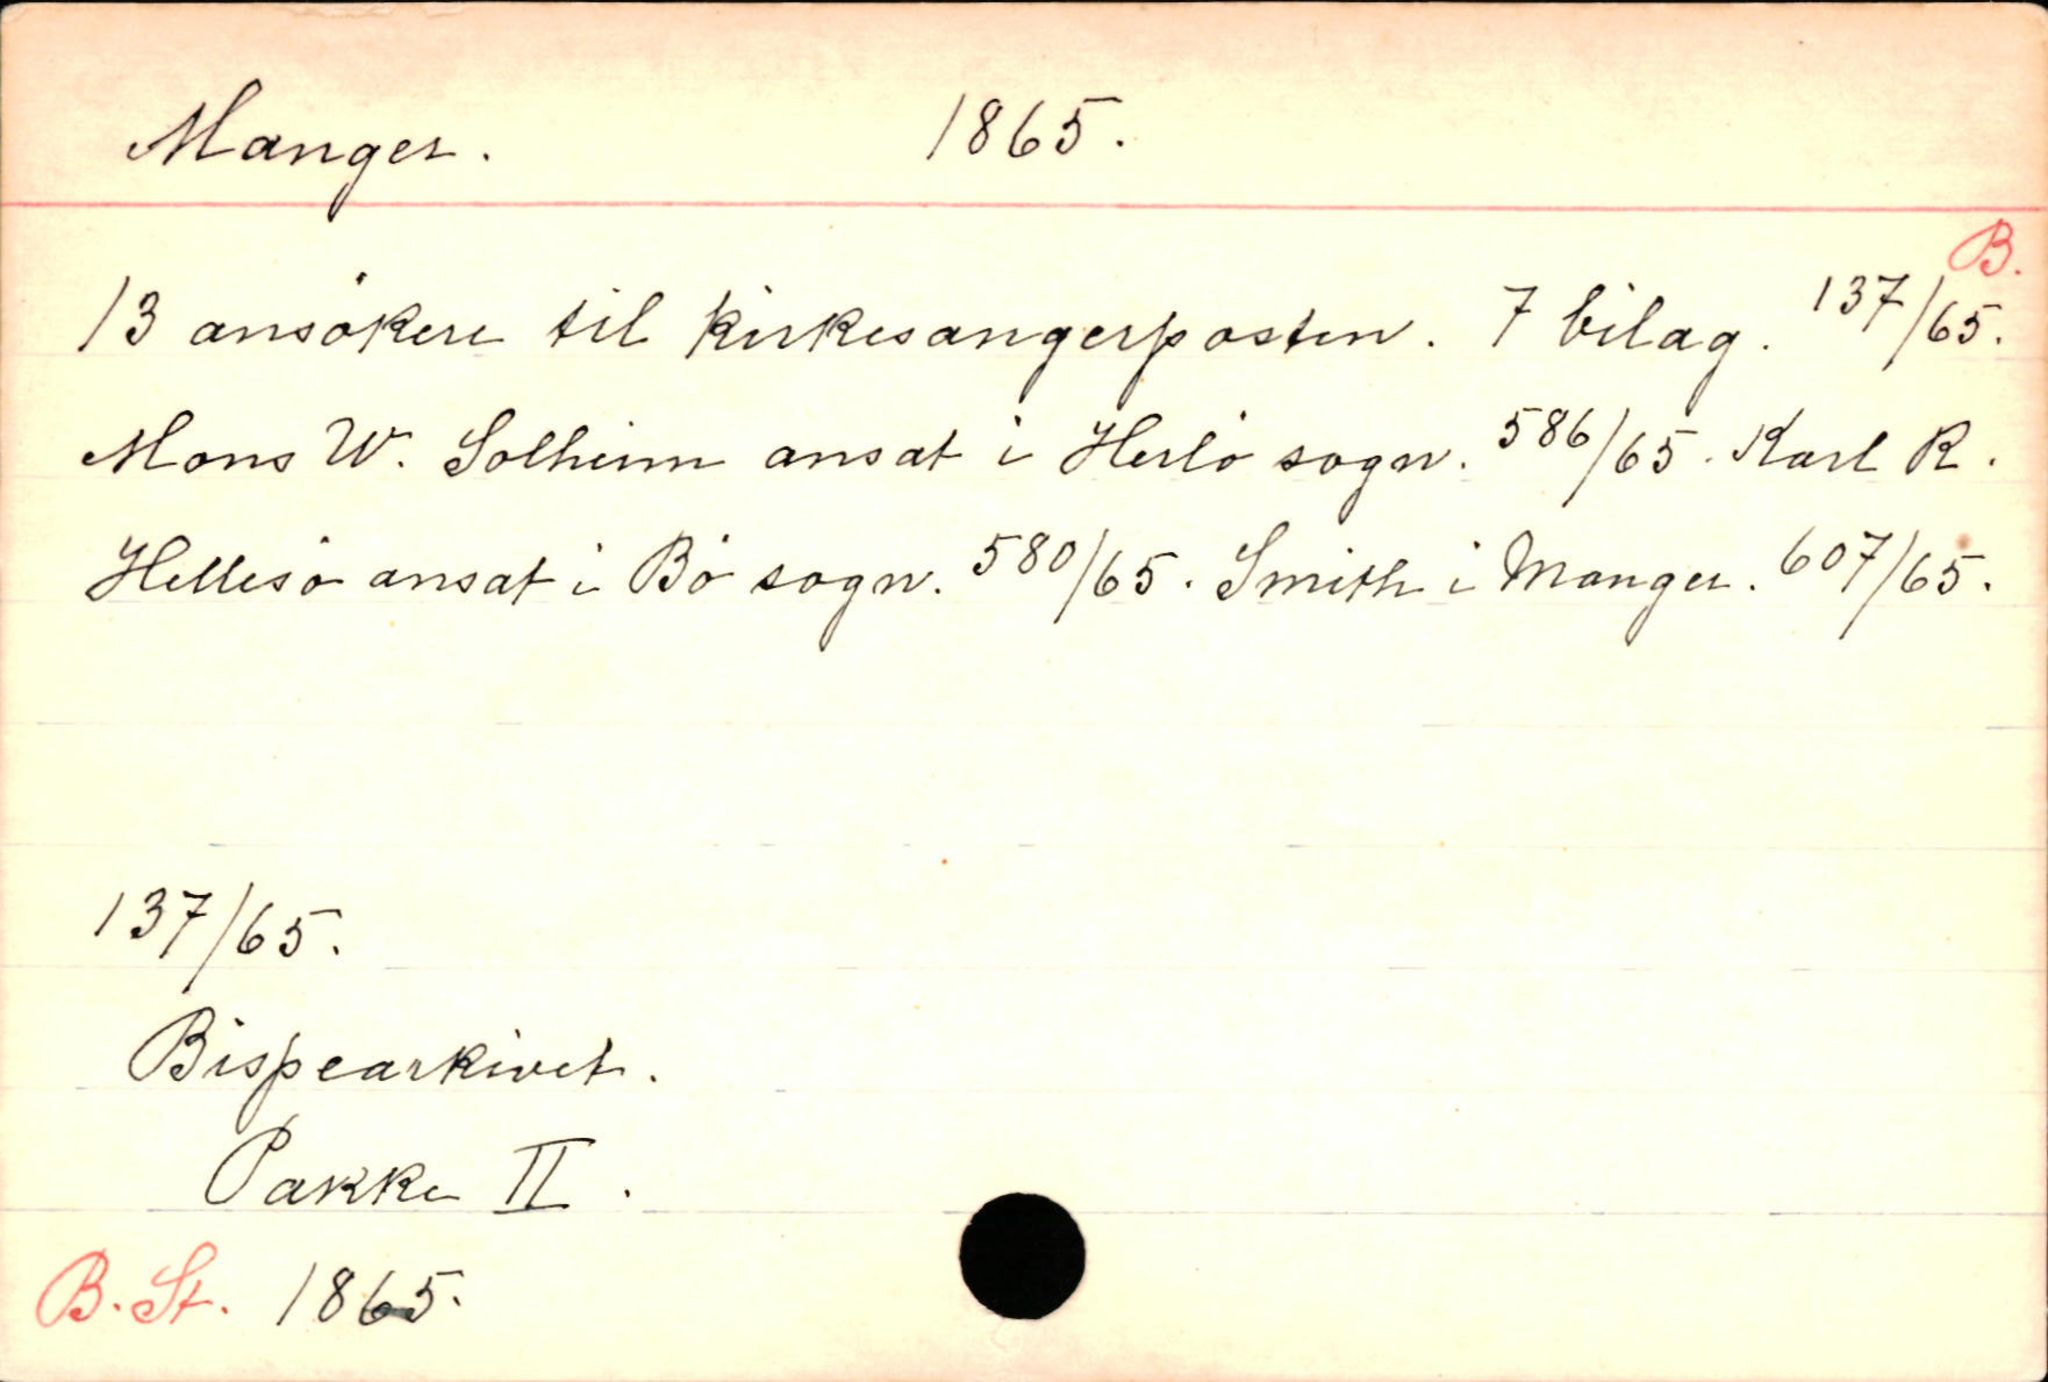 Manger. 1865.
B.
13 ansökere til kirkesangerposten. 7 bilag. 137/65.
Mons W. Solheim ansat i Herlö sogn. 586/65. Karl R.
Hellesö ansat i Bö sogn. 580/65. Smith i Manger. 607/65.
137/65.
Bispearkivet.
Pakke II.
B. St. 1865.